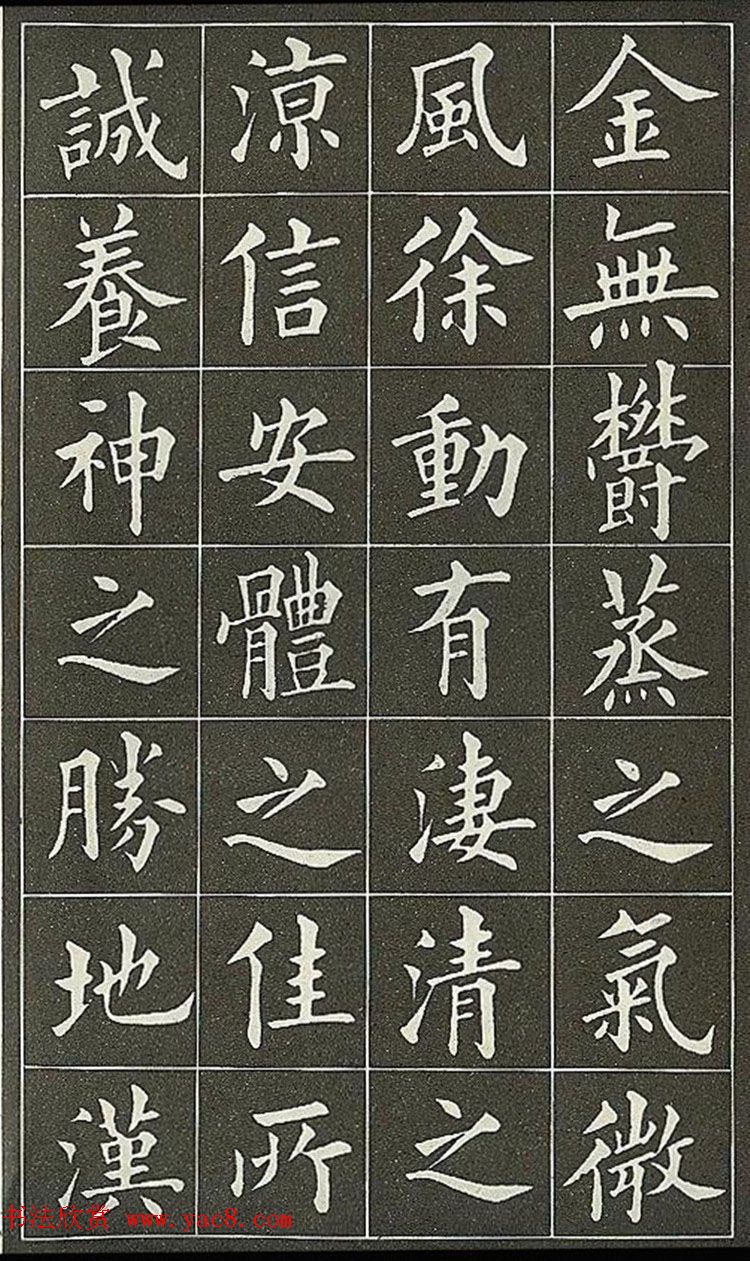 金無鬱蒸之氣微
風徐動有淒清之
涼信安體之佳所
誠養神之勝地漢
书法欣赏 www.yac8.com